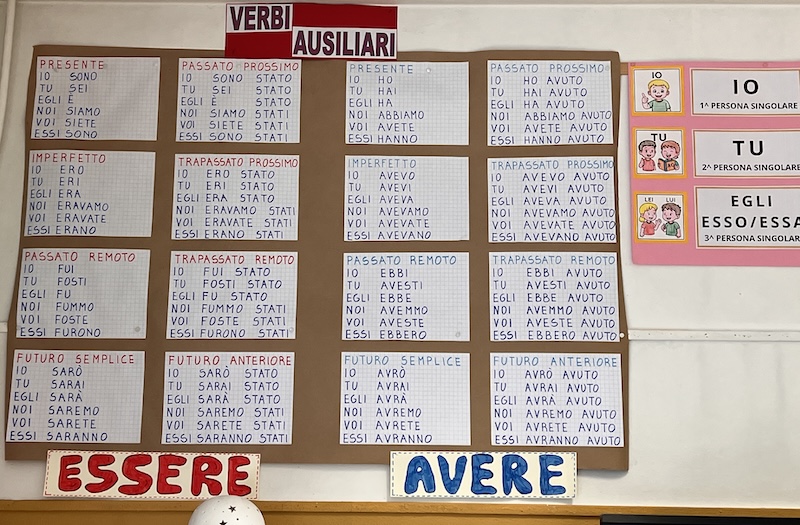 VERBI
AUSILIARI
PRESENTE
IO SONO
TU SEI
EGLI È
NOI SIAMO
VOI SIETE
ESSI SONO
PASSATO PROSSIMO
IO SONO STATO
TU SEI STATO
EGLI È STATO
NOI SIAMO STATI
VOI SIETE STATI
ESSI SONO STATI
PRESENTE
IO HO
TU HAI
EGLI HA
NOI ABBIAMO
VOI AVETE
ESSI HANNO
PASSATO PROSSIMO
IO HO AVUTO
TU HAI AVUTO
EGLI HA AVUTO
NOI ABBIAMO AVUTO
VOI AVETE AVUTO
ESSI HANNO AVUTO
IMPERFETTO
IO ERO
TU ERI
EGLI ERA
NOI ERAVAMO
VOI ERAVATE
ESSI ERANO
TRAPASSATO PROSSIMO
IO ERO STATO
TU ERI STATO
EGLI ERA STATO
NOI ERAVAMO STATI
VOI ERAVATE STATI
ESSI ERANO STATI
IMPERFETTO
IO AVEVO
TU AVEVI
EGLI AVEVA
NOI AVEVAMO
VOI AVEVATE
ESSI AVEVANO
TRAPASSATO PROSSIMO
IO AVEVO AVUTO
TU AVEVI AVUTO
EGLI AVEVA AVUTO
NOI AVEVAMO AVUTO
VOI AVEVATE AVUTO
ESSI AVEVANO AVUTO
PASSATO REMOTO
IO FUI
TU FOSTI
EGLI FU
NOI FUMMO
VOI FOSTE
ESSI FURONO
TRAPASSATO REMOTO
IO FUI STATO
TU FOSTI STATO
EGLI FU STATO
NOI FUMMO STATI
VOI FOSTE STATI
ESSI FURONO STATI
PASSATO REMOTO
IO EBBI
TU AVESTI
EGLI EBBE
NOI AVEMMO
VOI AVESTE
ESSI EBBERO
TRAPASSATO REMOTO
IO EBBI AVUTO
TU AVESTI AVUTO
EGLI EBBE AVUTO
NOI AVEMMO AVUTO
VOI AVESTE AVUTO
ESSI EBBERO AVUTO
FUTURO SEMPLICE
IO SARÒ
TU SARAI
EGLI SARÀ
NOI SAREMO
VOI SARETE
ESSI SARANNO
FUTURO ANTERIORE
IO SARÒ STATO
TU SARAI STATO
EGLI SARÀ STATO
NOI SAREMO STATI
VOI SARETE STATI
ESSI SARANNO STATI
FUTURO SEMPLICE
IO AVRÒ
TU AVRAI
EGLI AVRÀ
NOI AVREMO
VOI AVRETE
ESSI AVRANNO
FUTURO ANTERIORE
IO AVRÒ AVUTO
TU AVRAI AVUTO
EGLI AVRÀ AVUTO
NOI AVREMO AVUTO
VOI AVRETE AVUTO
ESSI AVRANNO AVUTO
ESSERE
AVERE
IO
IO
1^ PERSONA SINGOLARE
TU
TU
2^ PERSONA SINGOLARE
LEI LUI
EGLI
ESSO/ESSA
3^ PERSONA SINGOLARE